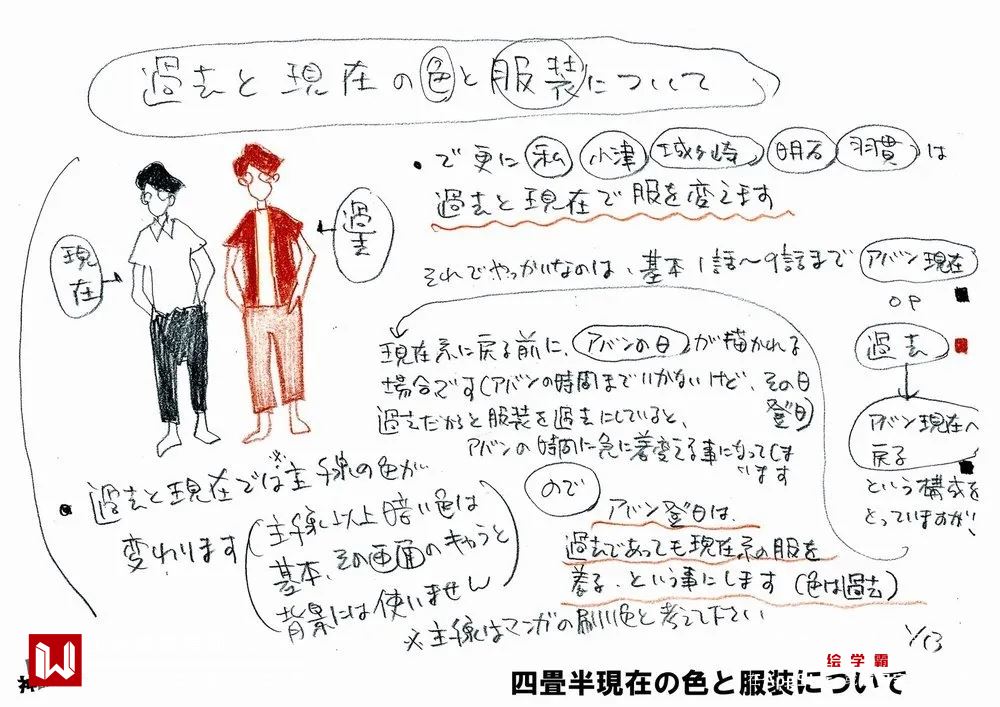 過去と現在の色と服装について
現在
過去
・で更に 私 小津 城ヶ崎 明石 羽貫 は
過去と現在で服を変えます
それでやっかいなのは、基本1話〜9話まで
アバン現在
OP
過去
アバン現在へ
戻る
という構成を
とっていますが、
現在系に戻る前に、アバンの日が描かれる
場合です(アバンの時間までいかないけど、その日
登日)
過去だからと服装を過去にしていると、
アバンの時間に急に着変える事になってしま
います
ので
アバン登日は、
過去であっても現在系の服を
着る、という事にします(色は過去)
・過去と現在では※主線の色が
変わります
(主線以上暗い色は
基本、その画面のキャラと
背景には使いません)
※主線はマンガの刷り色と考えて下さい
1/13
四畳半現在の色と服装について
绘学霸